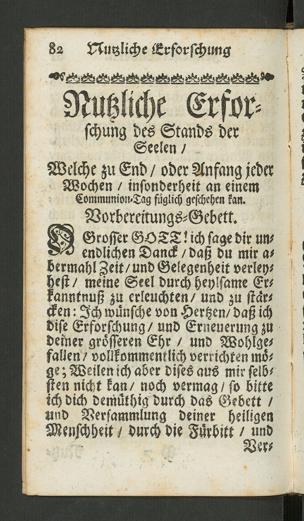 82 Nutzliche Erforschung
Nutzliche Erfor-
schung des Stands der
Seelen /
Welche zu End / oder Anfang jeder
Wochen / insonderheit an einem
Communion-Tag füglich geschehen kan.
Vorbereitungs-Gebett.
O Grosser GOTT! ich sage dir un-
endlichen Danck / daß du mir a-
bermahl Zeit / und Gelegenheit verley-
hest / meine Seel durch heylsame Er-
kanntnuß zu erleuchten / und zu stär-
cken: Ich wünsche von Hertzen / daß ich
dise Erforschung / und Erneuerung zu
deiner grösseren Ehr / und Wohlge-
fallen / vollkommentlich verrichten mö-
ge; Weilen ich aber dises aus mir selb-
sten nicht kan / noch vermag / so bitte
ich dich demüthig durch das Gebett /
und Versammlung deiner heiligen
Menschheit / durch die Fürbitt / und
Ver-